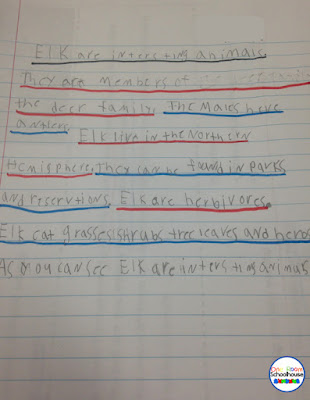 Elk are intersting animals.
They are members of
the deer family. The Males have
antlers. Elk live in the Northern
Hemisphere. They can be found in Parks
and reservtions. Elk are herbivores.
Elk eat grasses shrubs tree leaves and herbs
As you can see Elk are intersting animals
One Room
Schoolhouse